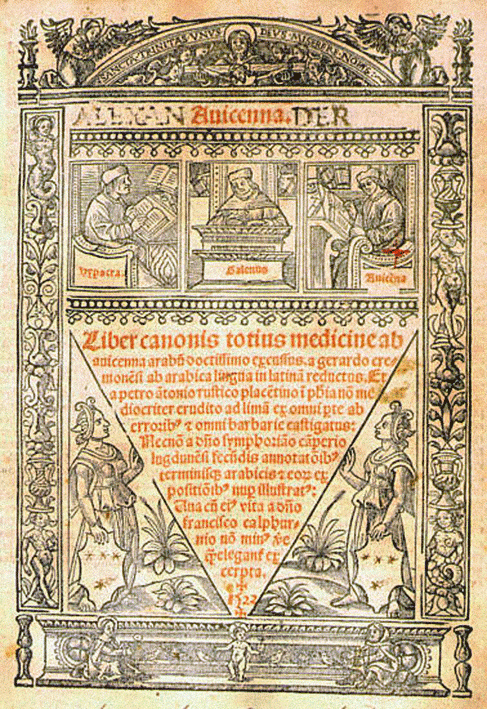 SANCTA·TRINITAS·VNVS DEVS·MISERERE·NOBIS
ALEXAN Auicenna. DER
Galenus
Auicēna
Liber canonis totius medicine ab
auicenna arabū doctissimo excussus. a gerardo cre⸗
monēsi ab arabica lingua in latinā reductus. Et
a petro ātonio rustico placētino ī phīa nō me
diocriter erudito ad limā ex omni pte ab
erroribꝰ ⁊ omni barbarie castigatus:
Necnō a dño symphoriāo cāperio
lugdunēsi fecūdis annotatōibꝰ
terminisqꝫ arabicis ⁊ eoꝝ ex
positiōibꝰ nup illustratꝰ:
Una cū eiꝰ vita a dño
francisco calphur⸗
nio nō minꝰ ve
elegant ex
cerpta.
1522